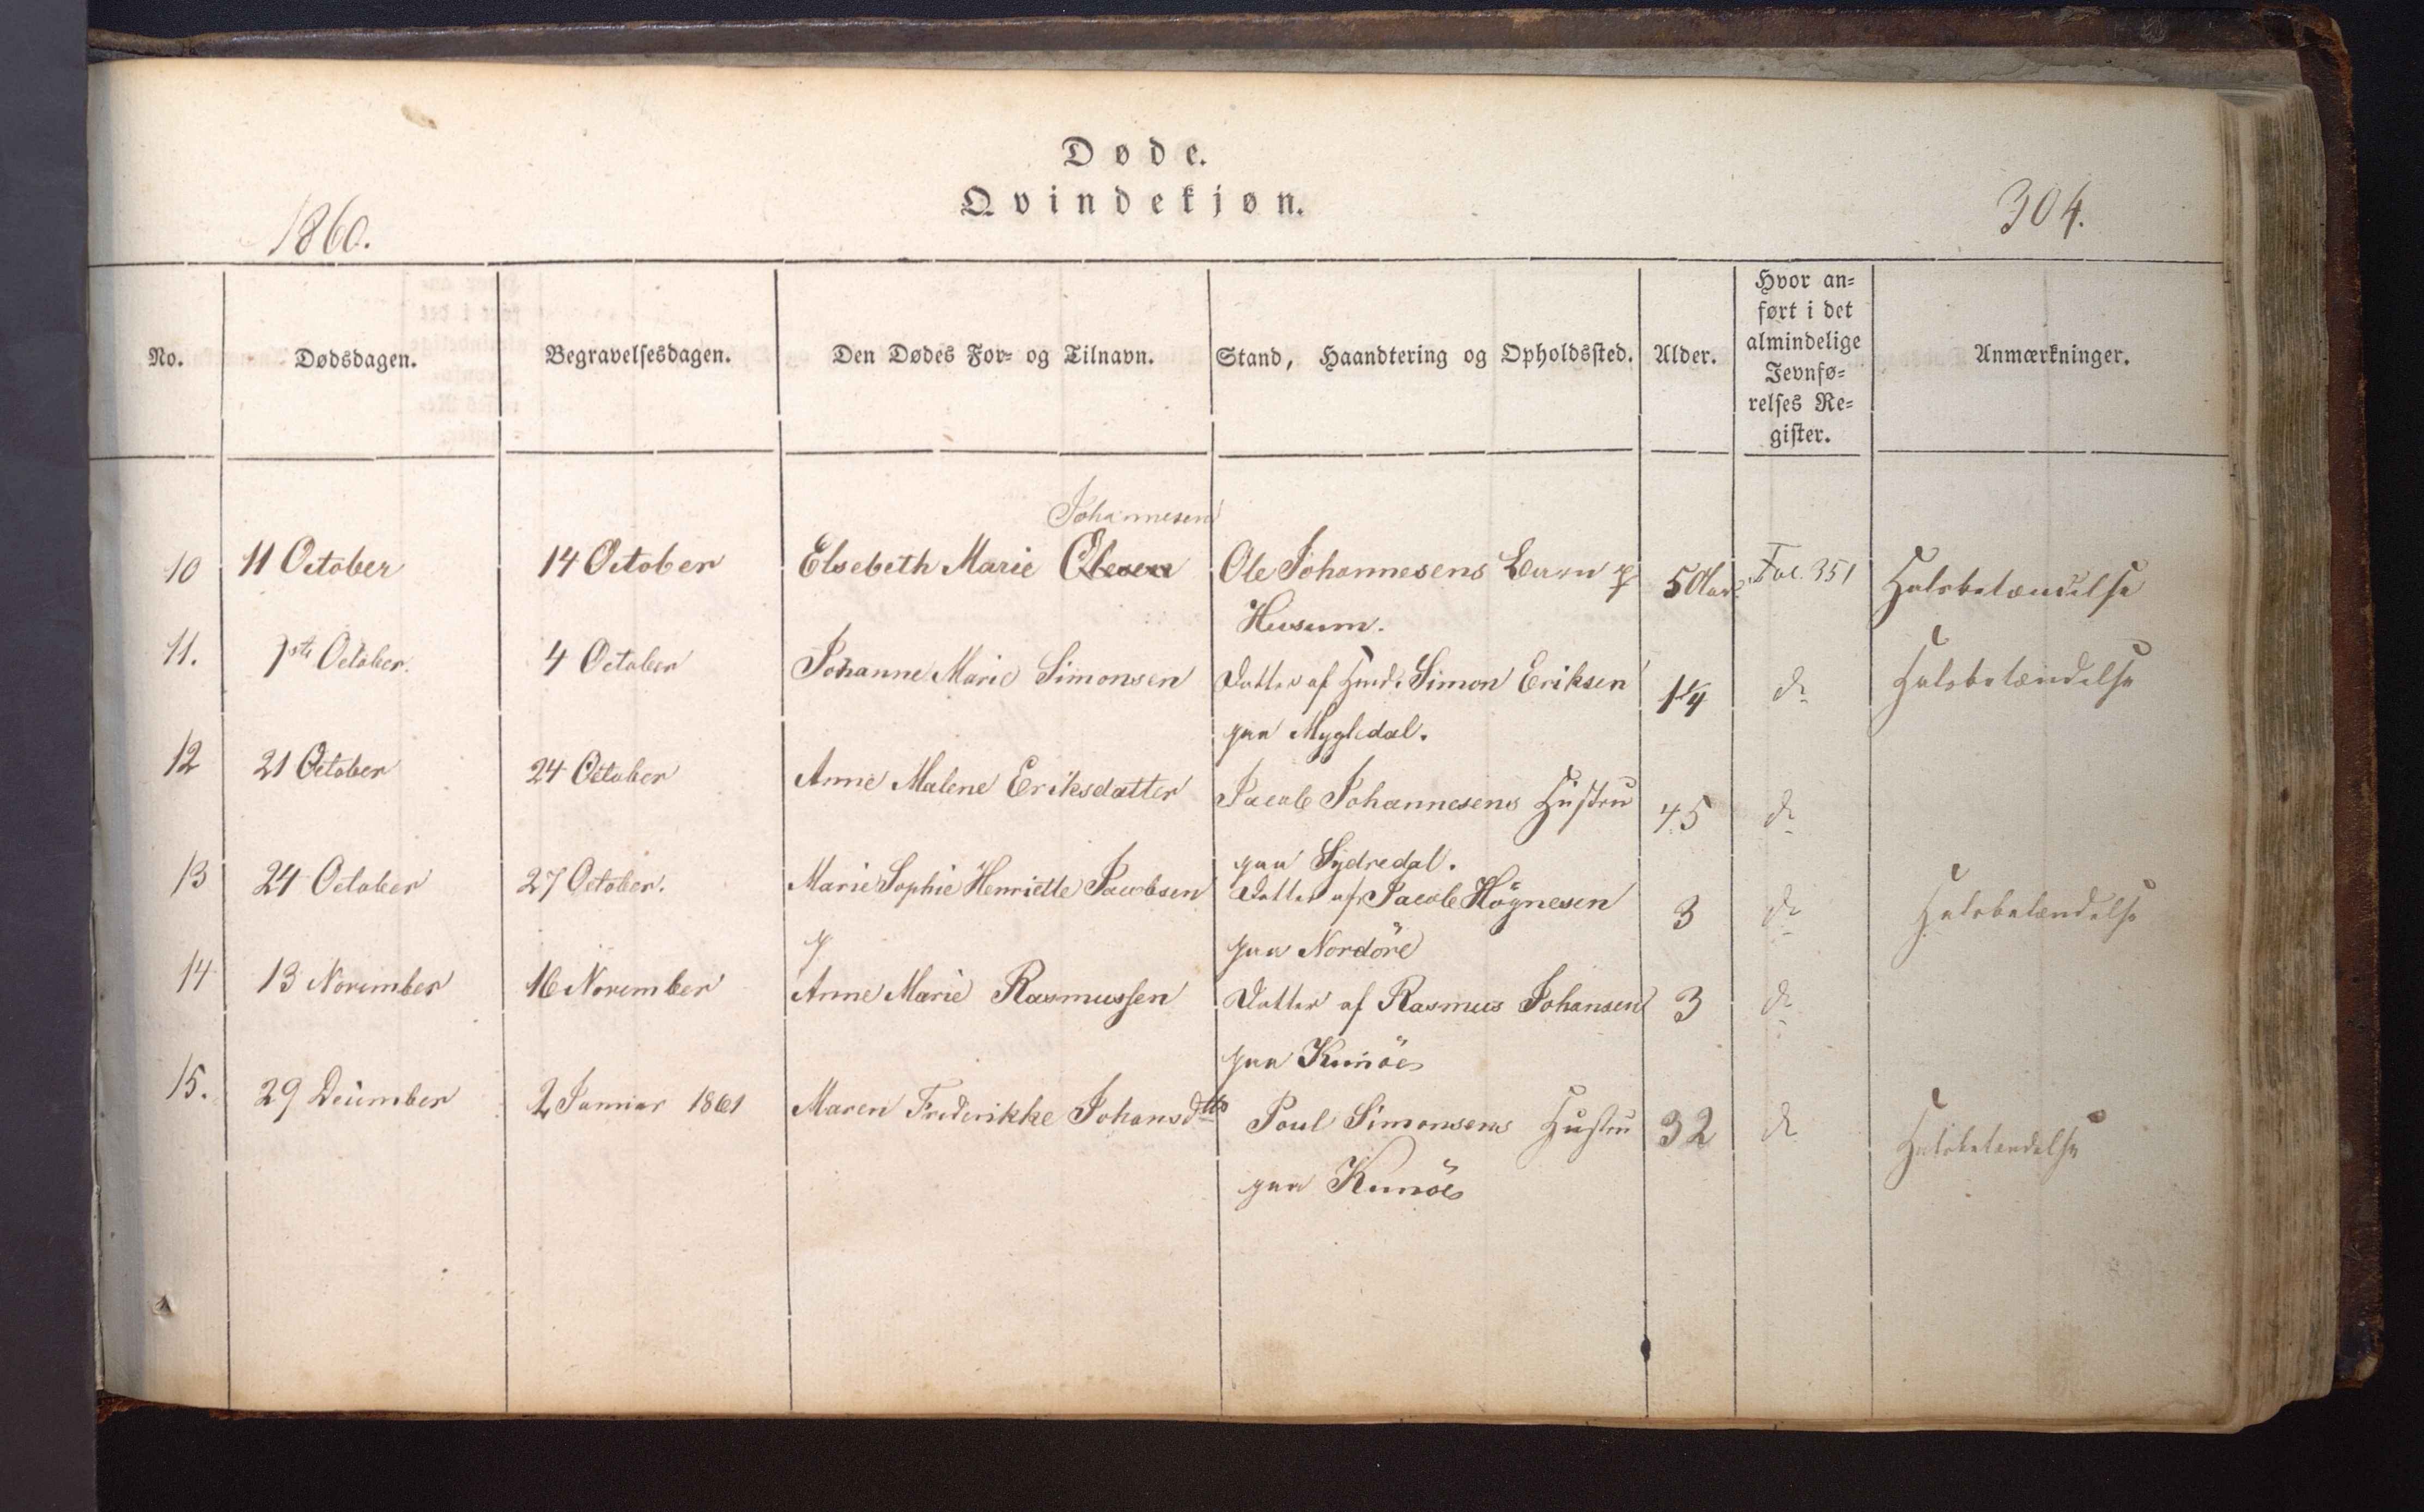 Døde.
Qvindekjøn.
1860.
304.
No.
Dødsdagen.
Begravelsesdagen.
Den Dødes For- og Tilnavn.
Stand, Haandtering og Opholdssted.
Alder.
Hvor an-
ført i det
almindelige
Jevnfø-
relses Re-
gister.
Anmærkninger.
Johannesen
10 11 October 14 October Elsebeth Marie Olesen Ole Johannesens Barn p 5 Aar Fol. 351 Halsbetændelse
Husum.
11. 1ste October. 4 October Johanne Marie Simonsen Datter af Huusm. Simon Eriksen 14 do Halsbetændelse
paa Mygledal.
12 21 October 24 October Anne Malene Eriksdatter Jacob Johannesens Hustru 45 do
paa Sydredal.
13 24 October 27 October. Marie Sophie Henriette Jacobsen Datter af Jacob Högnesen 3 do Halsbetændelse
paa Nordöre
14 13 November 16 November Anne Marie Rasmussen Datter af Rasmus Johansen 3 do
paa Kunöe
15. 29 December 2 Januar 1861 Maren Frederikke Johansdtt Poul Simonsens Hustru 32 do Halsbetændelse
paa Kunöe